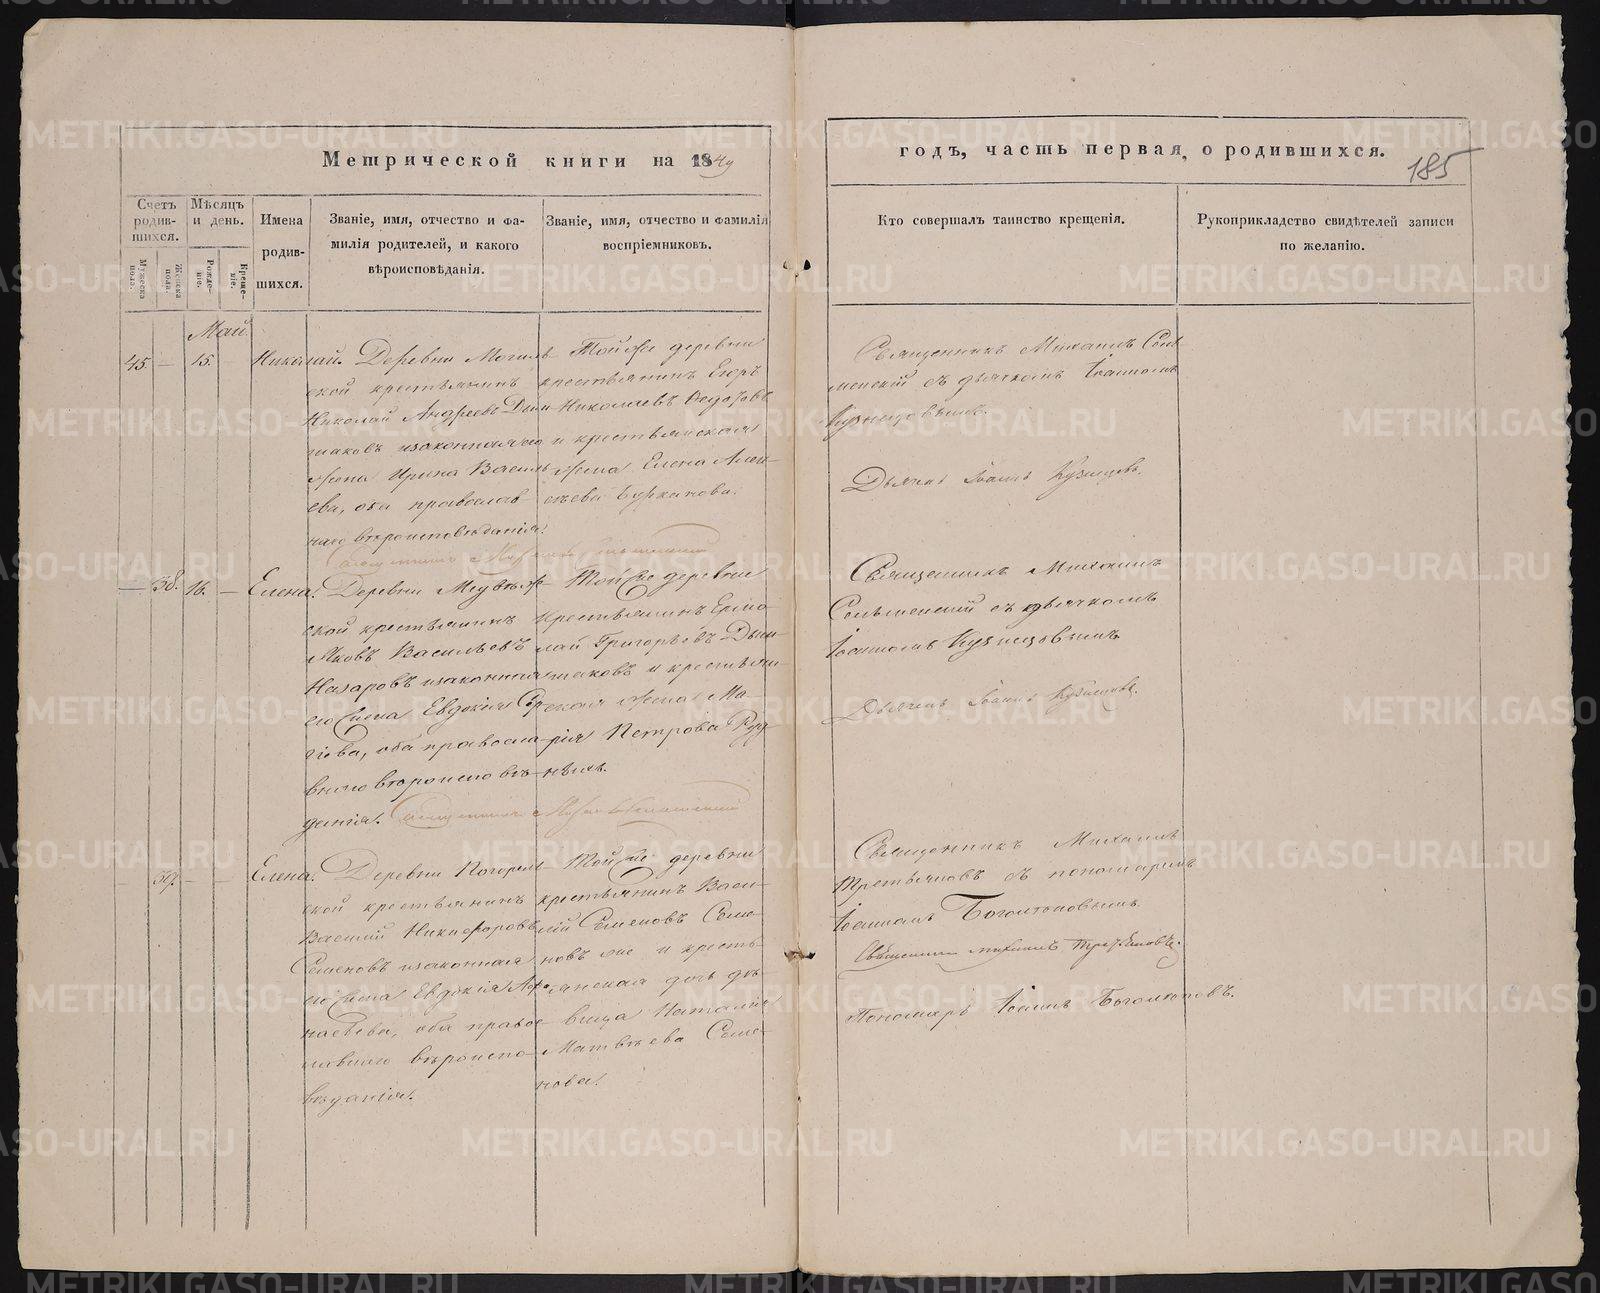 Метрической книги на 1844
годъ, часть первая, о родившихся.
185
Счетъ родив-шихся.
Мѣсяцъ и день.
Имена родив-шихся.
Званіе, имя, отчество и фа-
милія родителей, и какого
вѣроисповѣданія.
Званіе, имя, отчество и фамилія
воспріемниковъ.
Кто совершалъ таинство крещенія.
Рукоприкладство свидѣтелей записи
по желанію.
Мужеска пола.
Женска пола.
Рожде-ніе.
Креще-ніе.
Май
45. — 15. Николай.
Деревни Могиль-
ской крестьянинъ
Николай Андреевъ
шаковъ и законная его
жена Ирина Василь-
ева, оба православ
наго вѣроисповѣданія.
Той же деревни
крестьянинъ Егоръ
Николаевъ Ѳедоровъ
и крестьянская
жена Елена Алек-
сѣева
Священникъ Михаилъ
съ дьячкомъ Іоанномъ
Кузнецовымъ.
Дьячекъ Іоаннъ Кузнецовъ.
— 38. 16. — Елена.
Деревни Медвѣж-
ской крестьянинъ
Яковъ Васильевъ
Назаровъ и законная
его жена Евдокія Сер-
гіева, оба правосла-
внаго вѣроисповѣ-
данія.
Той же деревни
крестьянинъ Ермо-
лай Григорьевъ
шаковъ и крестьян-
ская жена Ма-
рія Петрова Руд-
ныхъ.
Священникъ Михаилъ
съ дьячкомъ
Іоанномъ Кузнецовымъ
Дьячекъ Іоаннъ Кузнецовъ.
— 39. — — Елена.
Деревни Погорѣль-
ской крестьянинъ
Василій Никифоровъ
Семеновъ и законная
его жена Евдокія Афа-
насьева, оба право-
славнаго вѣроиспо-
вѣданія.
Той же деревни
крестьянинъ Васи-
лій Семеновъ Семе-
новъ же и кресть-
янская дочь дѣ-
вица Наталія
Матвѣева Семе-
нова.
Священникъ Михаилъ
Третьяковъ съ пономаремъ
Іоанномъ Боголюповымъ.
Священникъ Михаилъ Третьяковъ.
Пономарь Іоаннъ Боголюповъ.
METRIKI.GASO-URAL.RU